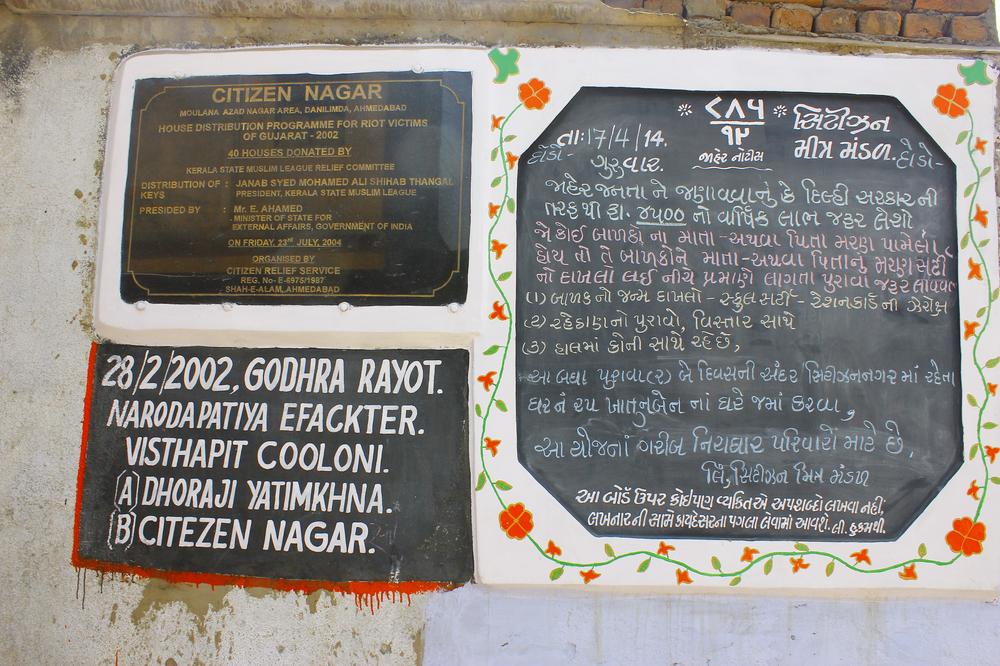 CITIZEN NAGAR
MOULANA AZAD NAGAR AREA, DANILIMDA, AHMEDABAD
HOUSE DISTRIBUTION PROGRAMME FOR RIOT VICTIMS
OF GUJARAT - 2002
40 HOUSES DONATED BY
KERALA STATE MUSLIM LEAGUE RELIEF COMMITTEE
DISTRIBUTION OF : JANAB SYED MOHAMED ALI SHIHAB THANGAL
KEYS PRESIDENT, KERALA STATE MUSLIM LEAGUE
PRESIDED BY : Mr. E. AHAMED
- MINISTER OF STATE FOR
EXTERNAL AFFAIRS, GOVERNMENT OF INDIA
ON FRIDAY, 23rd JULY, 2004
ORGANISED BY
CITIZEN RELIEF SERVICE
REG. No- E-6975/1987
SHAH-E-ALAM, AHMEDABAD
28/2/2002, GODHRA RAYOT.
NARODAPATIYA EFACKTER.
VISTHAPIT COOLONI.
(A) DHORAJI YATIMKHNA.
(B) CITEZEN NAGAR.
૭૮૬
૯૨
જાહેર નોટીસ
સિટીઝન
મીત્ર મંડળ.
તા:17/4/14.
ગુરુવાર.
દોડો-
દોડો-
જાહેર જનતા ને જણાવવાનું કે દિલ્હી સરકાર ની
તરફ થી રૂા. ૪૫૦૦ નો વર્ષિક લાભ જરૂર લેશો
જે કોઈ બાળકો ના માતા-અથવા પિતા મરણ પામેલા
હોય તો તે બાળકોને માતા-અથવા પિતાનું મરણ સર્ટી
નો દાખલો લઈ નીચે પ્રમાણે લાગતા પુરાવા જરૂર લાવવા
(૧) બાળક નો જન્મ દાખલો - સ્કુલ સર્ટી - રેશનકાર્ડ ની ઝેરોક્ષ
(૨) રહેઠાણનો પુરાવો, વિસ્તાર સાથે
(૩) હાલમાં કોની સાથે રહે છે,
આ બધા પુરાવા(ર) બે દિવસની અંદર સિટીઝનનગર માં રહેતા
ઘર નં ૨૫ ખાતુનબેન નાં ઘરે જમાં કરવા,
આ યોજનાં ગરીબ નિરાધાર પરિવારો માટે છે.
લિ, સિટીઝન મિત્ર મંડળ
આ બોર્ડ ઉપર કોઈપણ વ્યકિતએ અપશબ્દો લખવા નહીં,
લખનારની સામે કાયદેસરના પગલા લેવામાં આવશે. લી. હુકમથી.